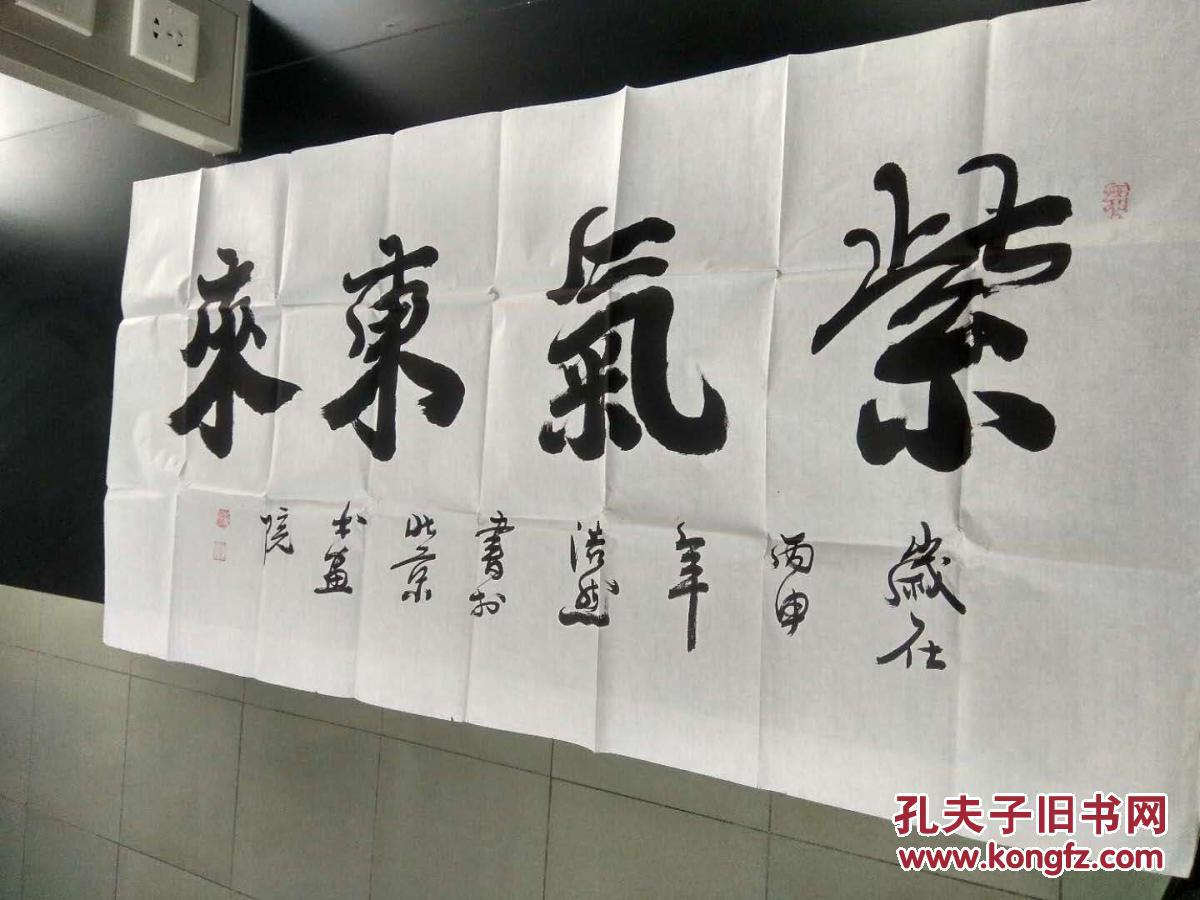 紫氣東來
歲在
丙申
年
浩然
書於
北京
書畫
院
孔夫子旧书网
www.kongfz.com